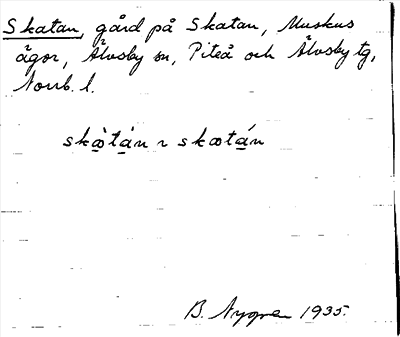 Skatan, gård på Skatan, Muskus
ägor, Älvsby sn, Piteå och Älvsby tg,
Norrb. l.
skæ̀tán ~ skætán
B. Nygren 1935.